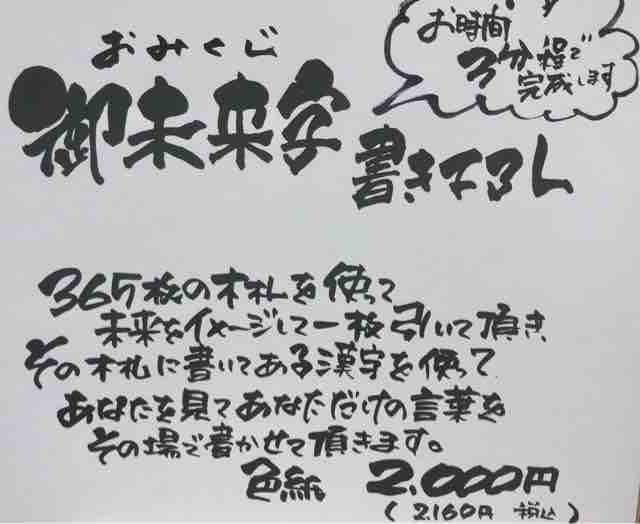 お時間
3分程で
完成します
おみくじ
御未来字
書き下ろし
365枚の木札を使って
未来をイメージして一枚引いて頂き
その木札に書いてある漢字を使って
あなたを見てあなただけの言葉を
その場で書かせて頂きます。
色紙 2,000円
(2,160円 税込)